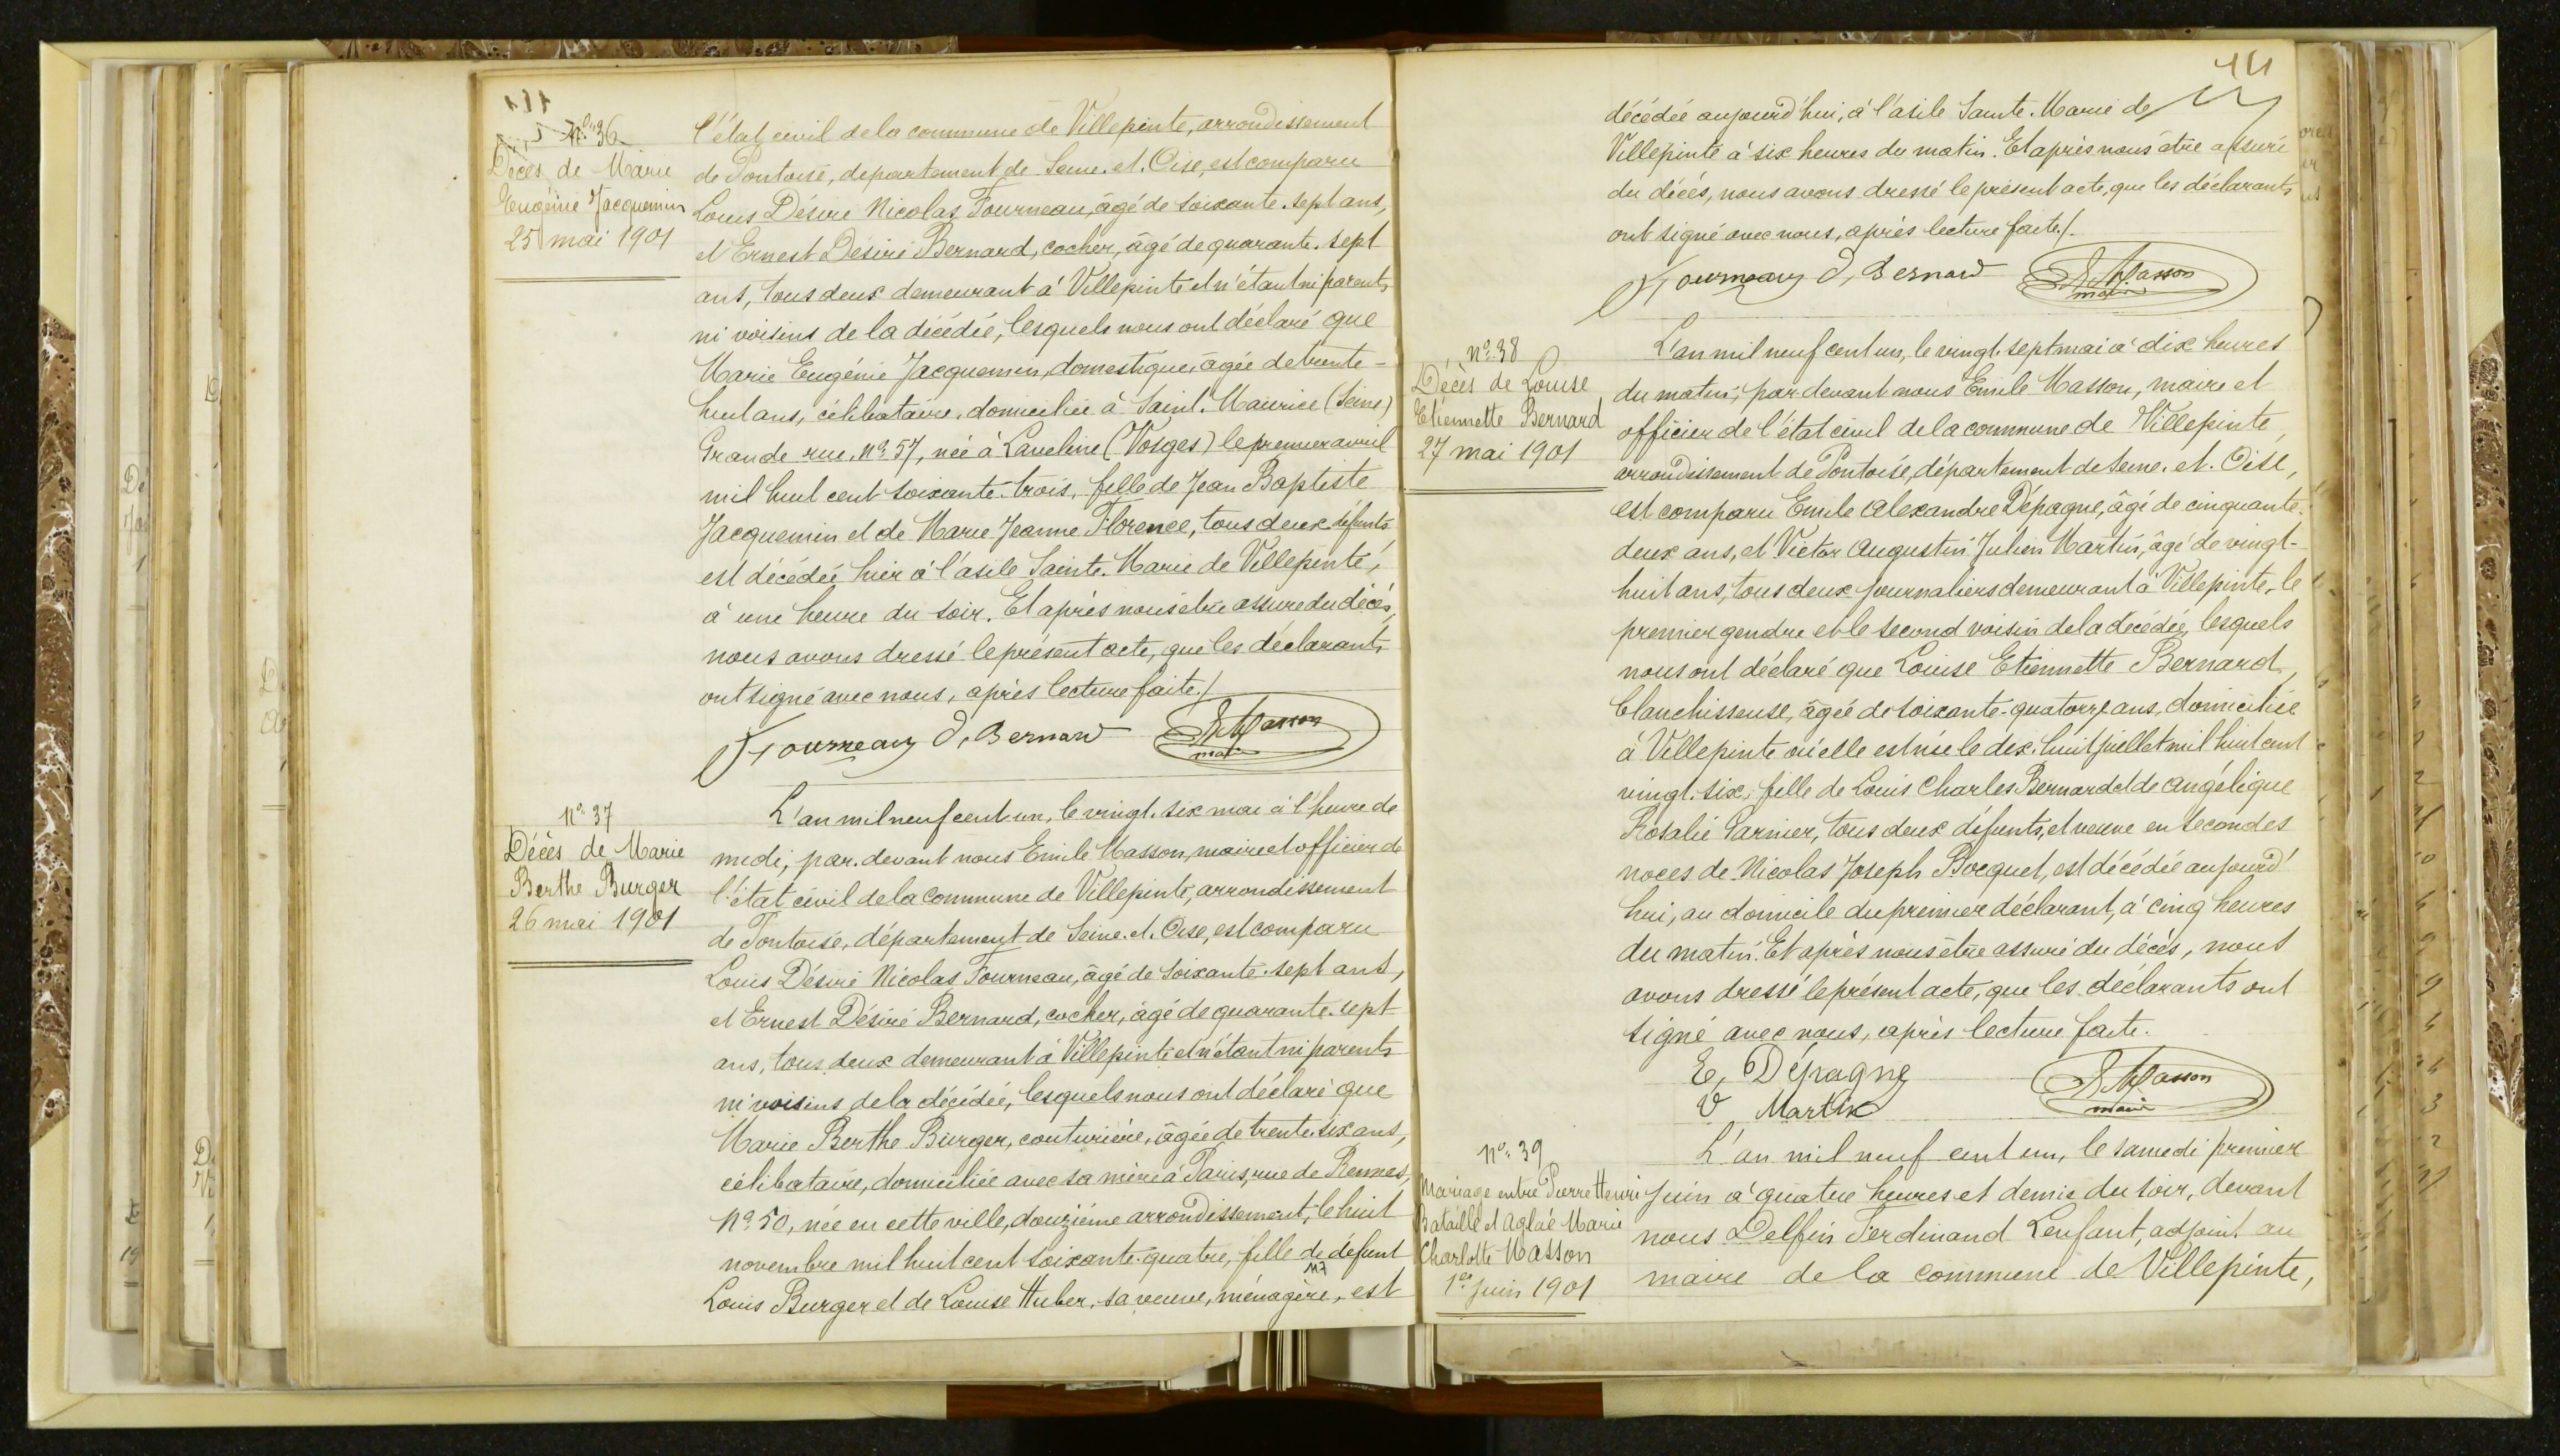 Nº 36
Décès de Marie
Eugénie Jacquemin
25 mai 1901
l'état civil de la commune de Villepinte, arrondissement
de Pontoise, département de Seine-et-Oise, est comparu
Louis Désiré Nicolas Fourneau, âgé de soixante-sept ans,
et Ernest Désiré Bernard, cocher, âgé de quarante-sept
ans, tous deux demeurant à Villepinte et n'étant ni parents,
ni voisins de la décédée, lesquels nous ont déclaré que
Marie Eugénie Jacquemin, domestique, âgée de trente-
huit ans, célibataire, domiciliée à Saint-Maurice (Seine)
Grande rue, Nº 57, née à Laveline (Vosges) le premier avril
mil huit cent soixante-trois, fille de Jean Baptiste
Jacquemin et de Marie Jeanne Florence, tous deux défunts
est décédée hier à l'asile Sainte-Marie de Villepinte,
à une heure du soir. Et après nous être assuré du décès,
nous avons dressé le présent acte, que les déclarants
ont signé avec nous, après lecture faite./.
Fourneau D, Bernard E. Masson
maire
Nº 37
Décès de Marie
Berthe Burger
26 mai 1901
L'an mil neuf cent un, le vingt-six mai à l'heure de
midi, par-devant nous Emile Masson, maire et officier de
l'état civil de la commune de Villepinte, arrondissement
de Pontoise, département de Seine-et-Oise, est comparu
Louis Désiré Nicolas Fourneau, âgé de soixante-sept ans,
et Ernest Désiré Bernard, cocher, âgé de quarante-sept
ans, tous deux demeurant à Villepinte et n'étant ni parents
ni voisins de la décédée, lesquels nous ont déclaré que
Marie Berthe Burger, couturière, âgée de trente-six ans,
célibataire, domiciliée avec sa mère à Paris, rue de Rennes,
Nº 50, née en cette ville, douzième arrondissement, le huit
novembre mil huit cent soixante-quatre, fille de défunt
Louis Burger et de Louise Huber, sa veuve, ménagère, est
décédée aujourd'hui, à l'asile Sainte-Marie de
Villepinte à six heures du matin. Et après nous être assuré
du décès, nous avons dressé le présent acte, que les déclarants
ont signé avec nous, après lecture faite./.
Fourneau D, Bernard E. Masson
maire
Nº 38
Décès de Louise
Etiennette Bernard
27 mai 1901
L'an mil neuf cent un, le vingt-sept mai à dix heures
du matin, par-devant nous Emile Masson, maire et
officier de l'état civil de la commune de Villepinte,
arrondissement de Pontoise, département de Seine-et-Oise,
est comparu Emile Alexandre Dépagne, âgé de cinquante-
deux ans, et Victor Augustin Julien Martin, âgé de vingt-
huit ans, tous deux journaliers demeurant à Villepinte, le
premier gendre et le second voisin de la décédée, lesquels
nous ont déclaré que Louise Etiennette Bernard,
blanchisseuse, âgée de soixante-quatorze ans, domiciliée
à Villepinte où elle est née le dix-huit juillet mil huit cent
vingt-six, fille de Louis Charles Bernard et de Angélique
Rosalie Garnier, tous deux défunts, et veuve en secondes
noces de Nicolas Joseph Bocquet, est décédée aujourd'
hui, au domicile du premier déclarant, à cinq heures
du matin. Et après nous être assuré du décès, nous
avons dressé le présent acte, que les déclarants ont
signé avec nous, après lecture faite.
E, Dépagne
V Martin
E. Masson
maire
Nº 39
Mariage entre Pierre Henri
Bataille et Aglaé Marie
Charlotte Masson
1er juin 1901
L'an mil neuf cent un, le samedi premier
juin à quatre heures et demie du soir, devant
nous Delfin Ferdinand Lenfant, adjoint au
maire de la commune de Villepinte,